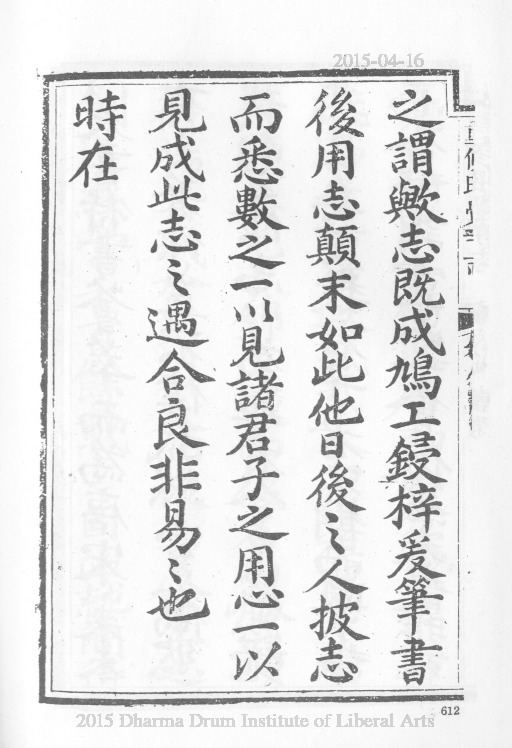 2015-04-16
之謂歟志既成鳩工鋟梓爰筆書
後用志顛末如此他日後之人披志
而悉數之一以見諸君子之用心一以
見成此志之遇合良非易易也
時在
612
2015 Dharma Drum Institute of Liberal Arts